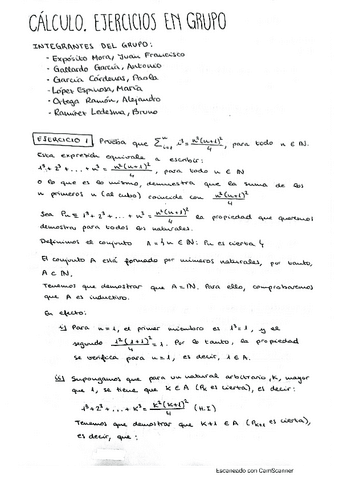 CÁLCULO. EJERCICIOS EN GRUPO
INTEGRANTES DEL GRUPO:
· Expósito Mora, Juan Francisco
· Gallardo García, Antonio
· García Cárdenas, Paola
· López Espinosa, María
· Ortega Ramón, Alejandro
· Ramírez Ledesma, Bruno
EJERCICIO 1 Prueba que ∑ᵢ₌₁ⁿ i³ = n²(n+1)²/4, para todo n ∈ ℕ.
Esta expresión equivale a escribir:
1³ + 2³ + ... + n³ = n²(n+1)²/4, para todo n ∈ ℕ
o lo que es lo mismo, demuestra que la suma de los
n primeros n (al cubo) coincide con n²(n+1)²/4
Sea Pn ≡ 1³ + 2³ + ... + n³ = n²(n+1)²/4 la propiedad que queremos
demostrar para todos los naturales.
Definimos el conjunto A = { n ∈ ℕ : Pn es cierta }
El conjunto A está formado por números naturales, por tanto,
A ⊂ ℕ.
Tenemos que demostrar que A = ℕ. Para ello, comprobaremos
que A es inductivo.
En efecto:
i) Para n = 1, el primer miembro es 1³ = 1, y el
segundo 1²(1+1)²/4 = 1. Por lo tanto, la propiedad
se verifica para n = 1, es decir, 1 ∈ A.
ii) Supongamos que para un natural arbitrario, K, mayor
que 1, se tiene que K ∈ A (PK es cierta), es decir:
1³ + 2³ + ... + K³ = K²(K+1)²/4 (H.I)
Tenemos que demostrar que K+1 ∈ A (PK+1 es cierta),
es decir, que:
Escaneado con CamScanner